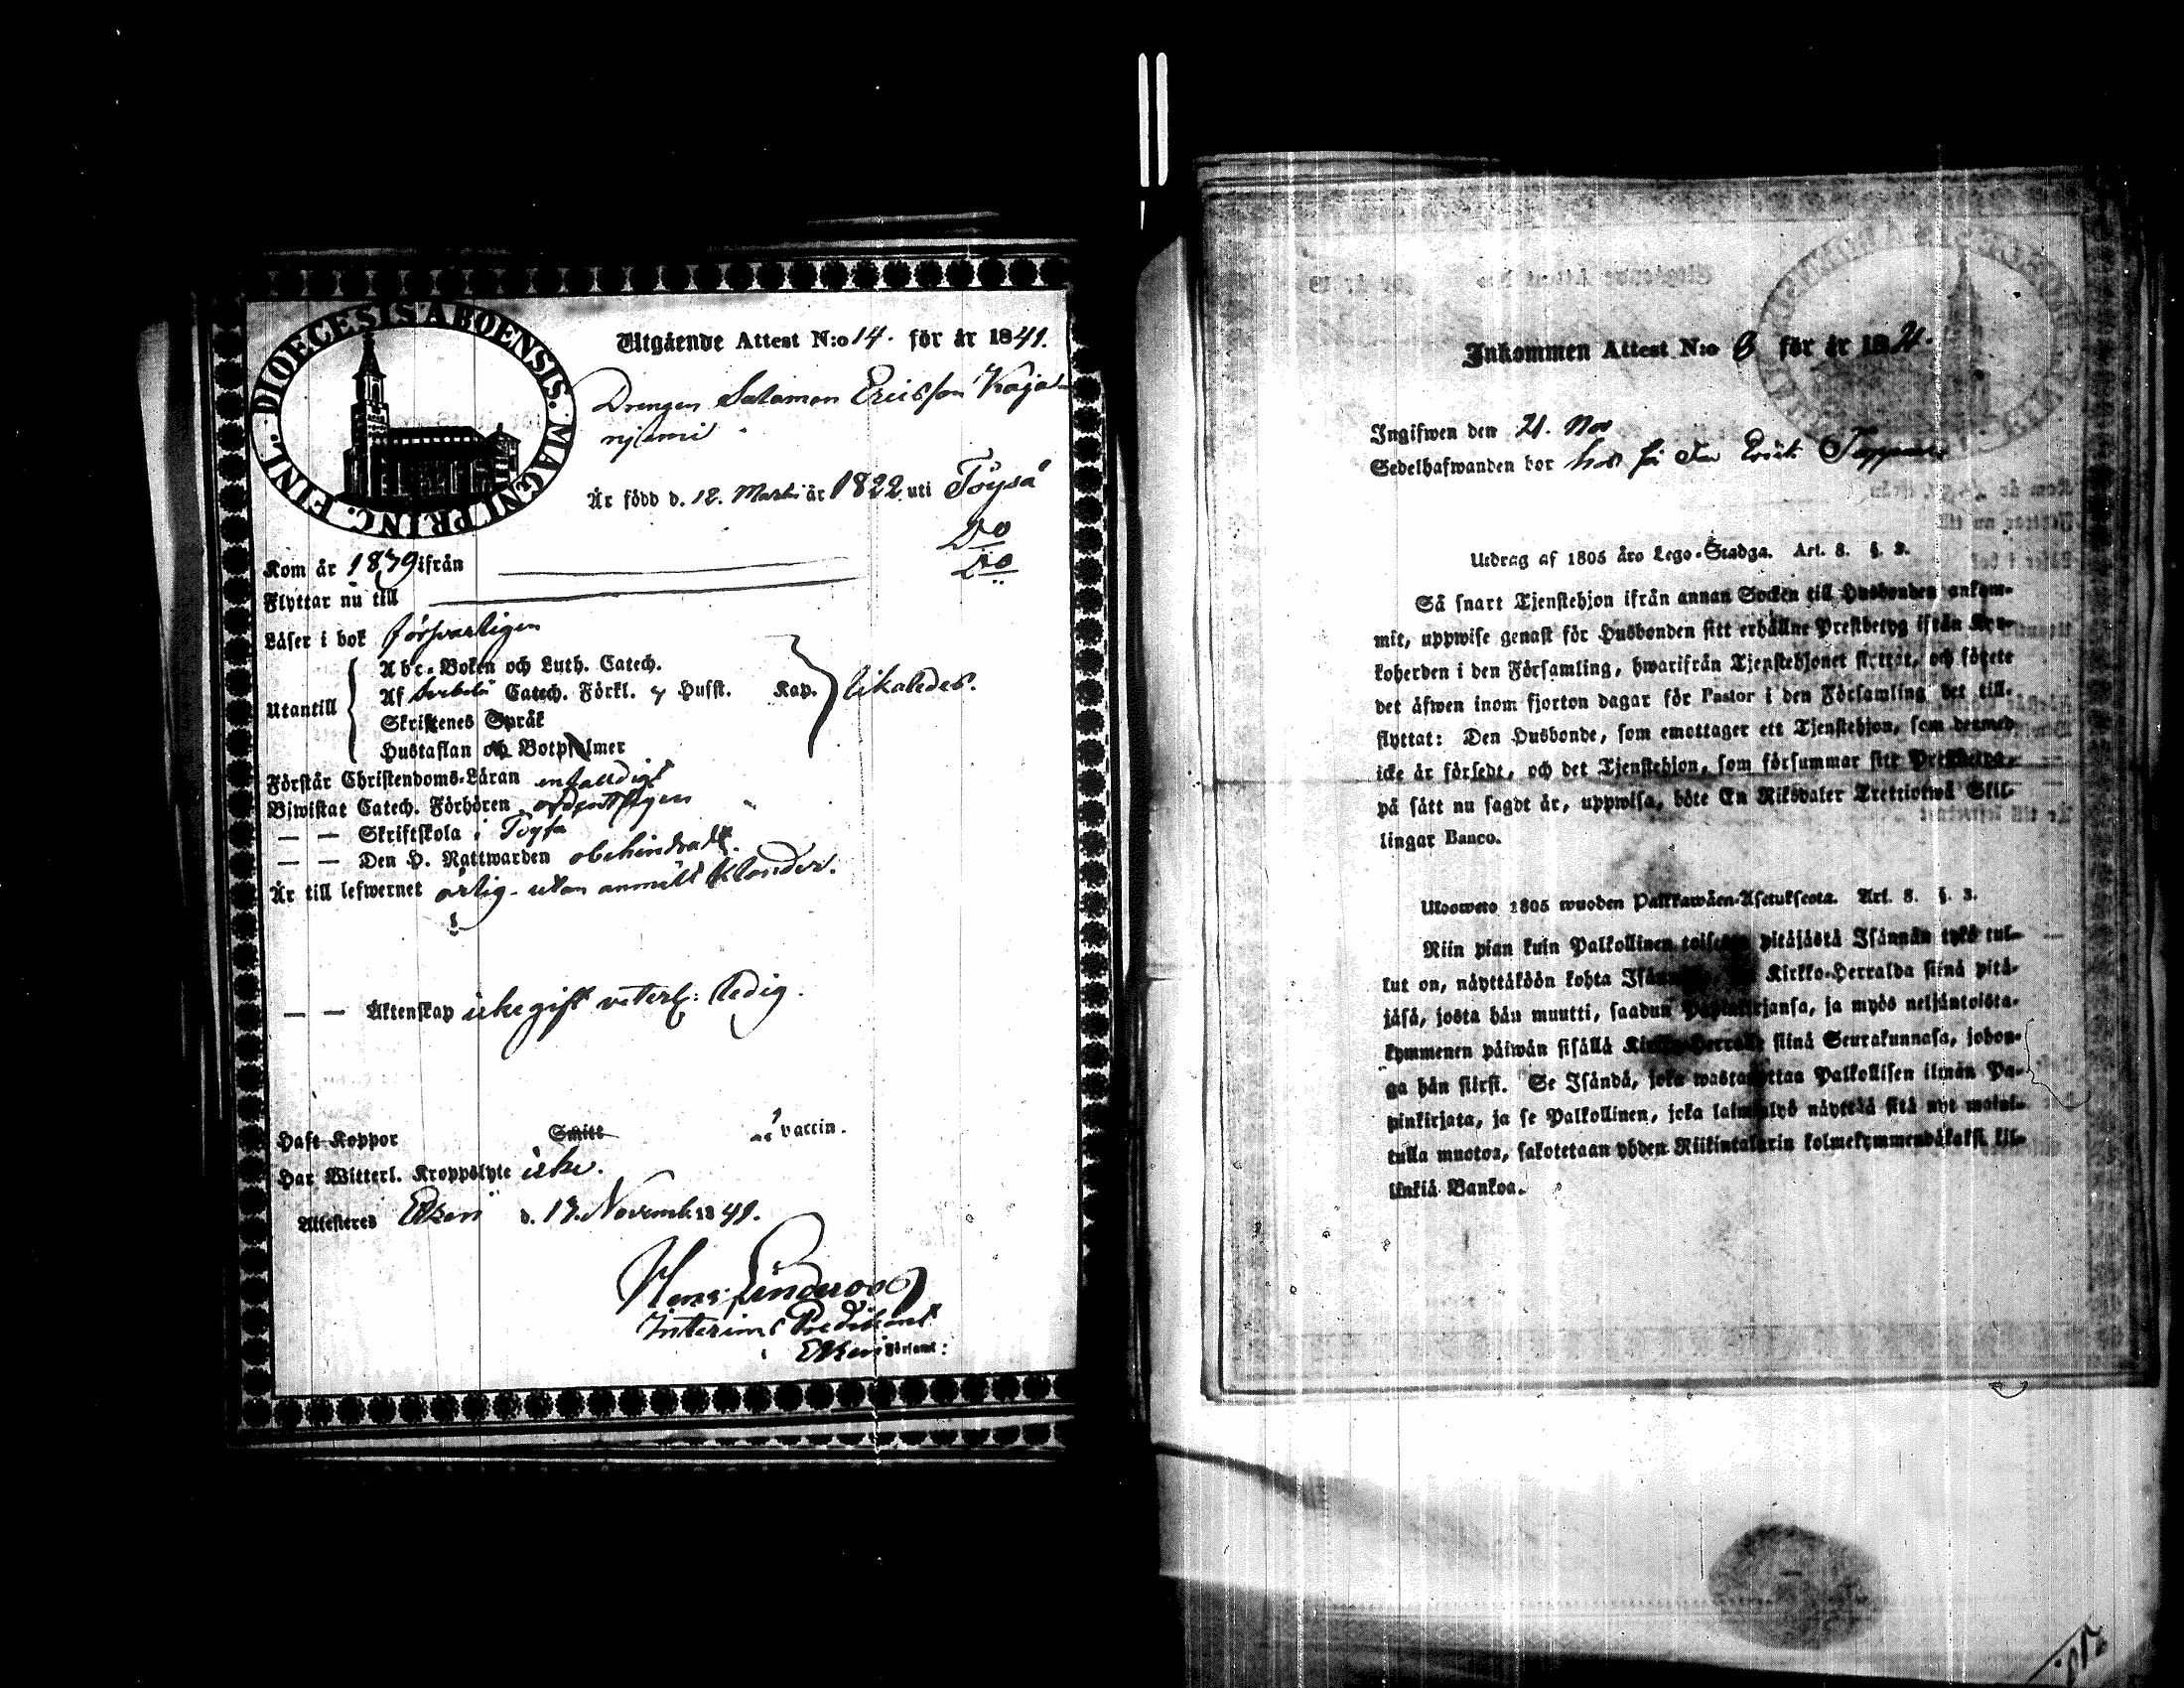 DIOECESIS ABOENSIS. MAGNI PRINC. FINL.
Utgående Attest N:o 14. för år 1841.
Drengen Salomon Ericsson Kaja-
njemi
Är född d. 12. Martii år 1822. uti Töysä
Kom år 1839 ifrån Do
Flyttar nu till Do
Läser i bok försvarligen
Utantill
Abc-Boken och Luth. Catech.
Af Svebelii Catech. Förkl. 7 Husst. Kap. likaledes.
Skriftenes Språk
Hustaflan och Botpsalmer
Förstår Christendoms-Läran enfaldigt
Biwistat Catech. Förhören ordentligen
— — Skriftskola i Töysä
— — Den H. Nattwarden obehindradt.
Är till lefwernet ärlig utan anmäldt klander.
— — Äktenskap icke gift veterl: ledig.
Haft Koppor Smitt vaccin.
Har Witterl. Kroppslyte icke.
Attesteres Etseri d. 13. Novemb. 1841.
Interims Predikant
i Etseri Församl:
Inkommen Attest N:o 6 för år 18
Ingifwen den 21. Nov
Sedelhafwanden bor hos
Utdrag af 1805 års Lego-Stadga. Art. 8. §. 3.
Så snart Tjenstehjon ifrån annan Socken till Husbonden ankom-
mit, uppwise genast för Husbonden sitt erhållne Prestbetyg ifrån Kyr-
koherden i den Församling, hwarifrån Tjenstehjonet flyttat, och förete
det äfwen inom fjorton dagar för Pastor i den Församling det till-
flyttat: Den Husbonde, som emottager ett Tjenstehjon, som dermed
icke är försedt, och det Tjenstehjon, som försummar sitt Prestbetyg,
på sätt nu sagdt är, uppwisa, böte En Riksdaler Trettiotwå Skil-
lingar Banco.
Ulosweto 1805 wuoden Palkkawäen-Asetuksesta. Art. 8. §. 3.
Niin pian kuin Palkollinen toisesta pitäjästä Isännän tykö tul-
lut on, näyttäköön kohta Isännälle Kirkko-Herralda siinä pitä-
jäsä, josta hän muutti, saadun Papinkirjansa, ja myös neljäntoista-
kymmenen päiwän sisällä Kirkko-Herralle siinä Seurakunnasa, johon-
ga hän siirsi. Se Isändä, joka wastanottaa Palkollisen ilman Pa-
pinkirjata, ja se Palkollinen, joka laiminlyö näyttää sitä nyt mainit-
tulla muotoa, sakotetaan yhden Riikintalarin kolmekymmendäkaksi kil-
linkiä Bankoa.